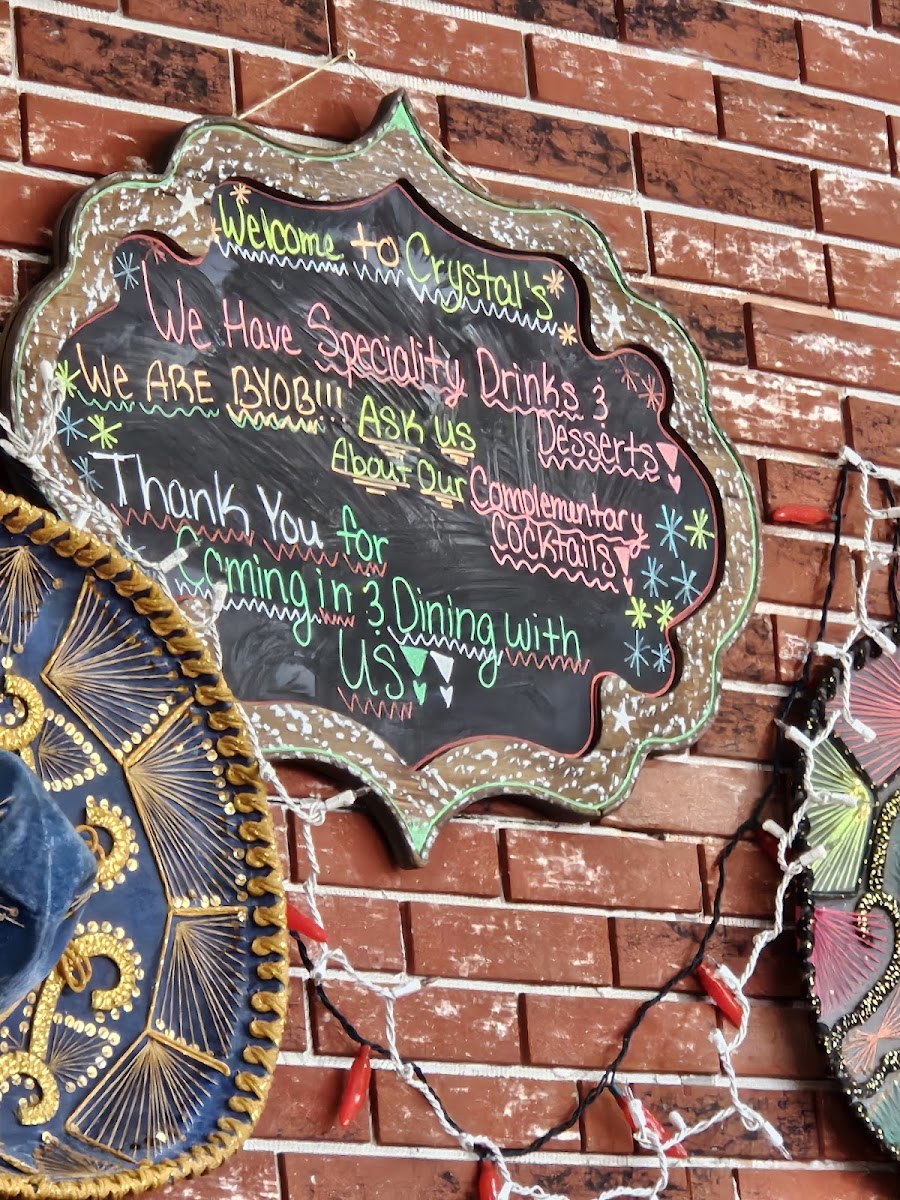 Welcome to Crystal's
We Have Speciality Drinks &
Desserts
We ARE BYOB!!!
Ask us
About Our
Complementary
Cocktails
Thank You for
Coming in & Dining with
Us